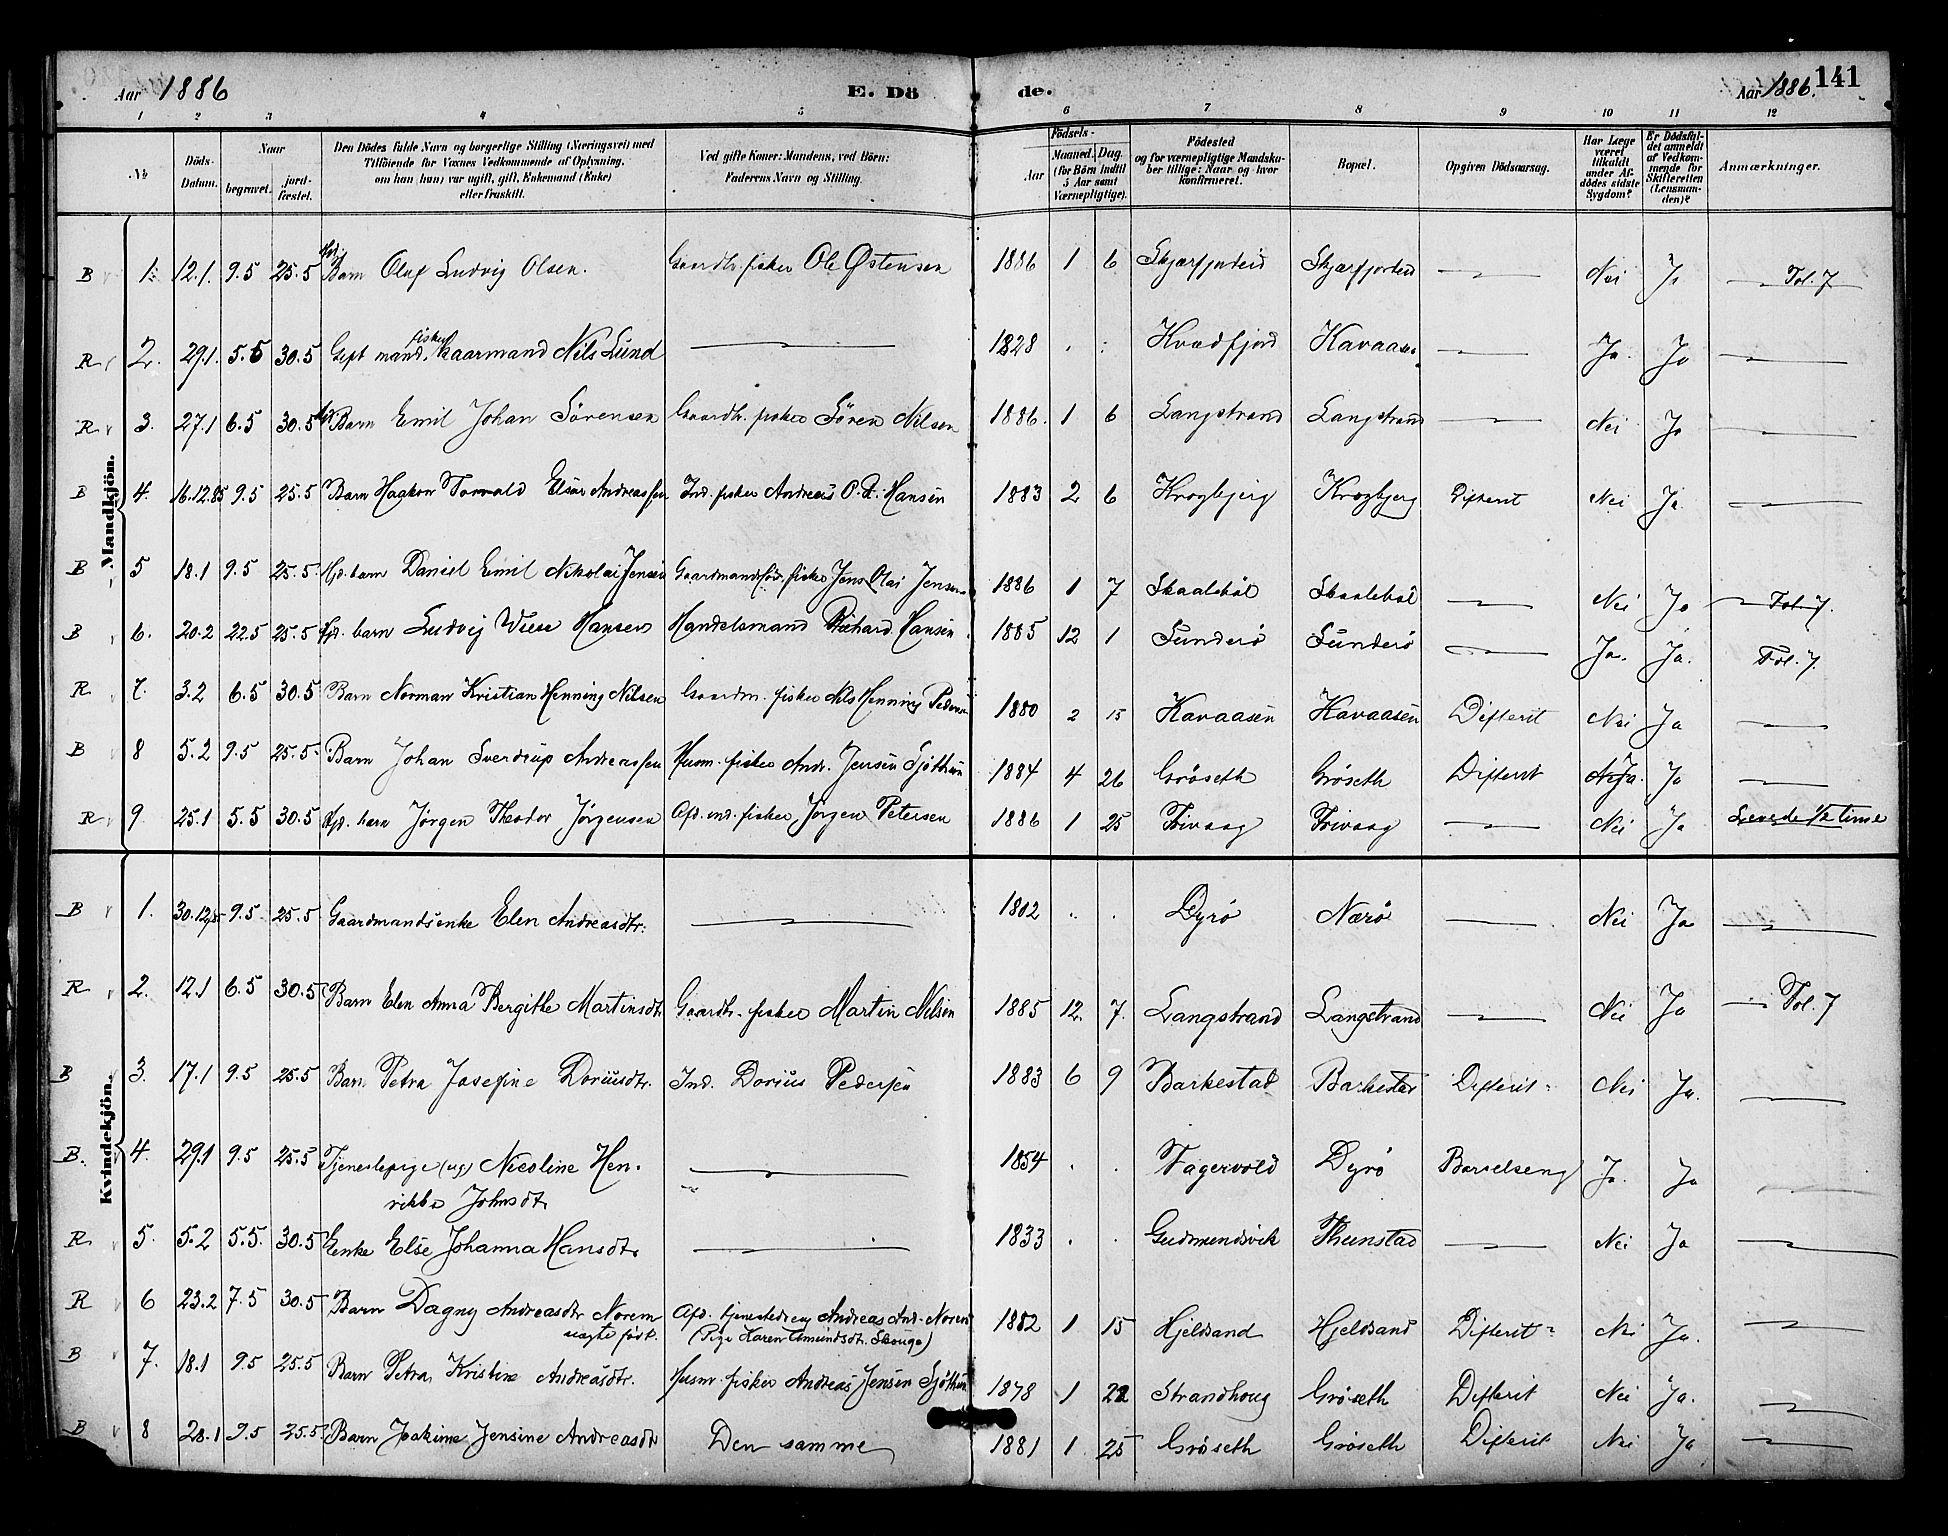 Aar 1886 E. Dö de. Aar 1886. 141
1 2 3 4 5 6 7 8 9 10 11 12
No Döds-Datum. Naar begravet. jord-fæstet. Den Dödes fulde Navn og borgerlige Stilling (Næringsvei) med Tilföiende for Voxnes Vedkommende af Oplysning, om han (hun) var ugift, gift, Enkemand (Enke) eller fraskilt. Ved gifte Koner: Mandens, ved Börn: Faderens Navn og Stilling. Födsels- Aar Maaned. Dag. (for Börn indtil 5 Aar samt Værnepligtige). Födested og for værnepligtige Mandskaber tillige: Naar og hvor konfirmeret. Bopæl. Opgiven Dödsaarsag. Har Læge været tilkaldt under Afdödes sidste Sygdom? Er Dödsfaldet anmeldt af Vedkommende for Skifteretten (Lensmanden)? Anmærkninger.
Mandkjön.
B 1. 12.1. 9.5 25.5 Hdj. Barn Oluf Ludvig Olsen. Gaardbr. fisker Ole Østensen 1886 1 6 Skjærfjordeid Skjærfjordeid — Nei Ja Fol. 7
R 2. 29.1. 5.5 30.5 Gift mand, fisker Gaarmand Nils Lund — 1828 . . Kvædfjord Kavaasen — Ja. Ja —
R 3. 27.1 6.5 30.5 Barn Emil Johan Sörensen Gaardbr. fisker Sören Nilsen 1886. 1 6 Langstrand Langstrand — Nei Ja —
B 4. 16.12.85 9.5 25.5 Barn Hagkon Torvald Elsar Andreassen Ind. fisker Andreas O. K. Hansen 1883 2 6 Krogbjerg Krogbjerg Difterit Nei Ja. —
B 5 18.1 9.5 25.5. Hjd. barn Daniel Emil Nikolai Jensen Gaardmandssøn, fisker Jens Olai Jensen 1886 1 7 Skaalebøl Skaalebøl — Nei Ja Fol. 7.
B 6. 20.2 22.5 25.5 Hjd. barn Ludvig Wiese Hansen Handelsmand Richard Hansen. 1885 12 1 Sunderö Sunderö — Ja. Ja. Fol. 7.
R 7. 3.2 6.5 30.5 Barn Norman Kristian Henning Nilsen Gaardm. fisker Nils Henning Pedersen 1880 2 15 Kavaasen Kavaasen Difterit Nei Ja —
B 8 5.2 9.5 25.5. Barn Johan Sverdrup Andreassen Husm. fisker Andr. Jensen Sjøthun 1884 4 26 Grøseth Grøseth Difterit Ja. Ja —
R 9. 25.1 5.5 30.5 Hjd. barn Jörgen Theodor Jörgensen Afd. ind. fisker Jörgen Petersen 1886 1 25 Frivaag Frivaag — Nei Ja Levede 1/2 time
Kvindekjön.
B 1. 30.12.85 9.5 25.5 Gaardmandsenke Elen Andreasdtr. — 1802 . . Dyrø Nærø — Nei Ja —
R 2. 12.1 6.5 30.5 Barn Elen Anna Bergithe Martinsdtr. Gaardbr. fisker Martin Nilsen 1885 12. 7. Langstrand Langstrand — Nei Ja Fol. 7
B 3. 17.1 9.5 25.5 Barn Petra Josefine Doriusdtr. Ind. Dorius Pedersen 1883 6 9 Barkestad Barkestad Difterit Nei Ja. —
B. 4. 29.1 9.5 25.5 Tjenestepige (ug) Nicoline Hen- — 1854 . . Fagervold Dyrø Barselseng Ja. Ja —
rikke Johnsdtr.
R. 5. 5.2 5.5. 30.5 Enke Else Johanna Hansdtr. — 1833 . . Gudmundsvik Thunstad — Nei Ja —
R 6 23.2 7.5 30.5 Barn Dagny Andreasdtr Norem Afd. tjenestedreng Andreas And. Norem 1882 1 15 Hjeldsand Hjeldsand Difterit Nei Ja. —
uægte født. (Pige Karen Amundsdtr. Skouge)
B 7. 18.1 9.5 25.5 Barn Petra Kristine Andreasdtr. Husm. fisker Andreas Jensen Sjøthun 1878 1 22 Strandhoug Grøseth Difterit Nei Ja. —
B 8 28.1 9.5 25.5. Barn Joakime Jensine Andreasdtr Den samme 1881 1. 25 Grøseth Grøseth Difterit Nei Ja —